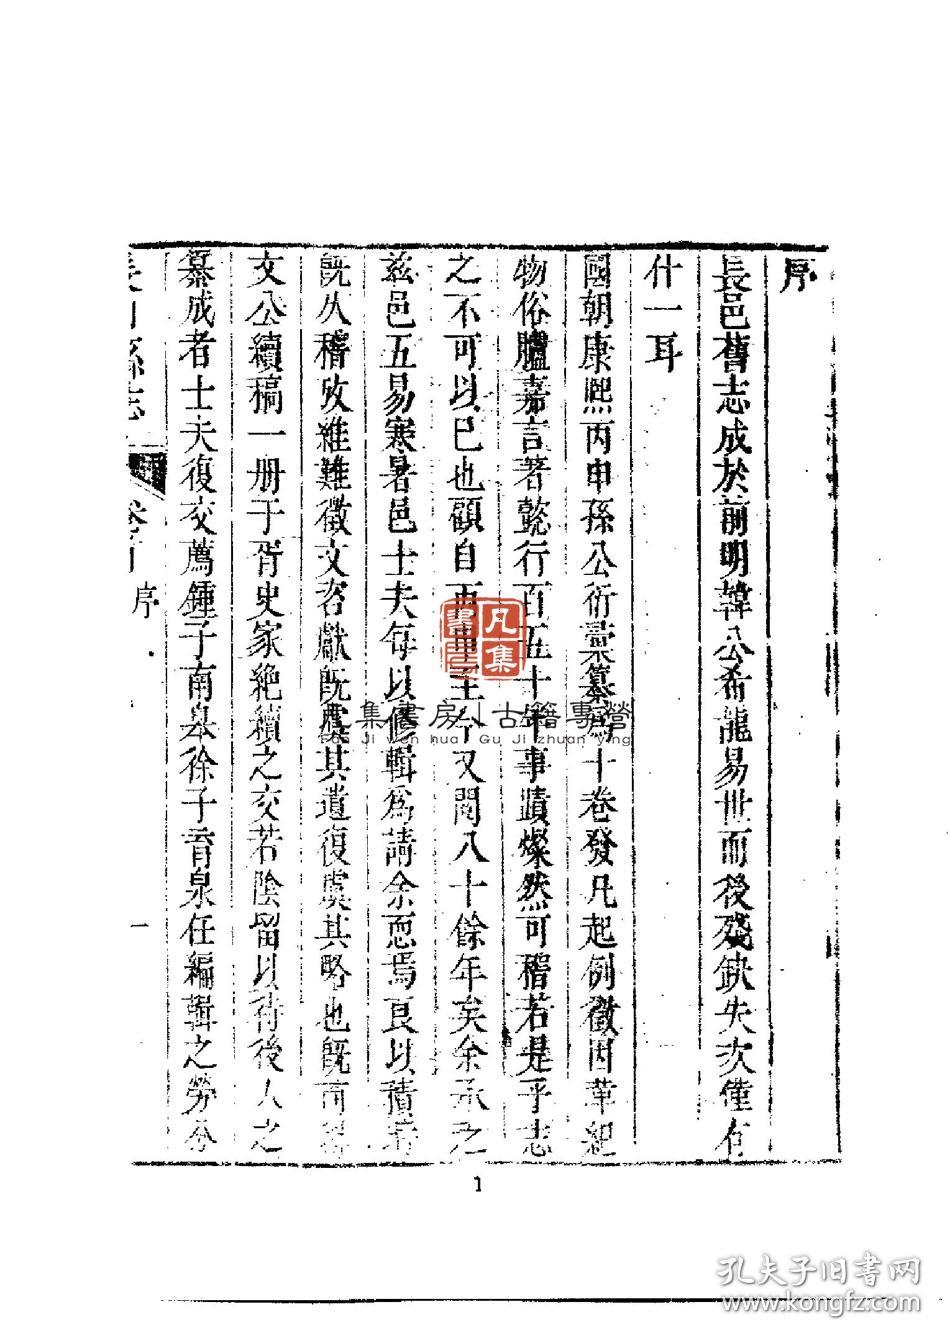 序
長邑舊志成於前明韓公希龍易世而後殘缺失次僅有
什一耳
國朝康熙丙申孫公衍彙纂為十卷發凡起例徵因革紀
物俗臚嘉言著懿行百五十年事蹟燦然可稽若是乎志
之不可以已也顧自丙申至今又閱八十餘年矣余承乏
茲邑五易寒暑邑士夫每以修輯為請余恧焉良以積
既久稽攷維難徵文咨獻既虞其遺復虞其略也既而
文公續稿一册于胥史家絶續之交若陰留以待後人之
纂成者士夫復交薦鍾子南皋徐子育泉任編輯之勞分
長山縣志
卷首
序
一
凡集書
集書房|古籍專營
Gu Ji zhuan ying
1
孔夫子旧書网
www.kongfz.com